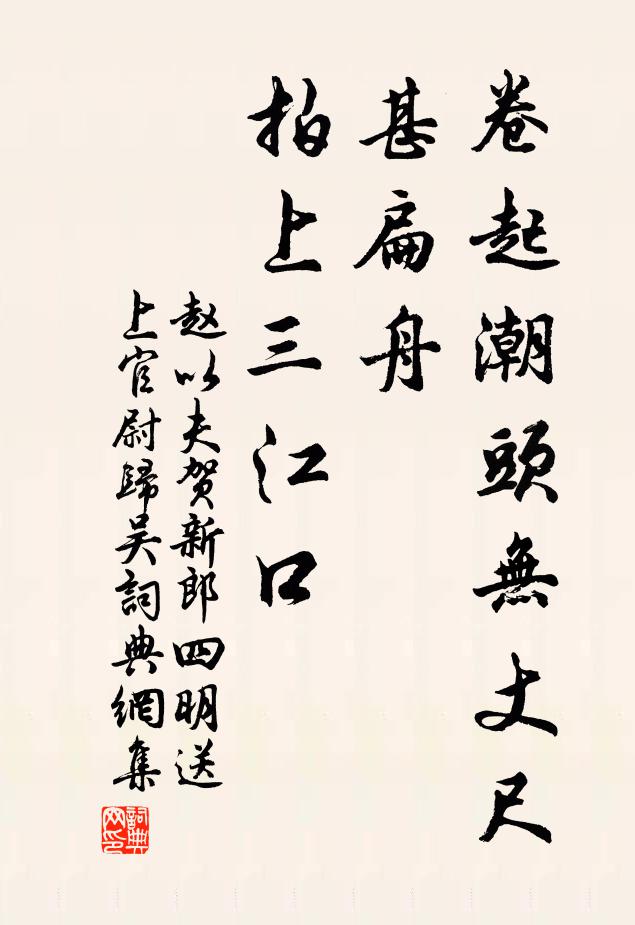 卷起潮頭無丈尺
甚扁舟
拍上三江口
赵以夫贺新郎四明送
上官尉歸吴詞典網集
詞典
网印